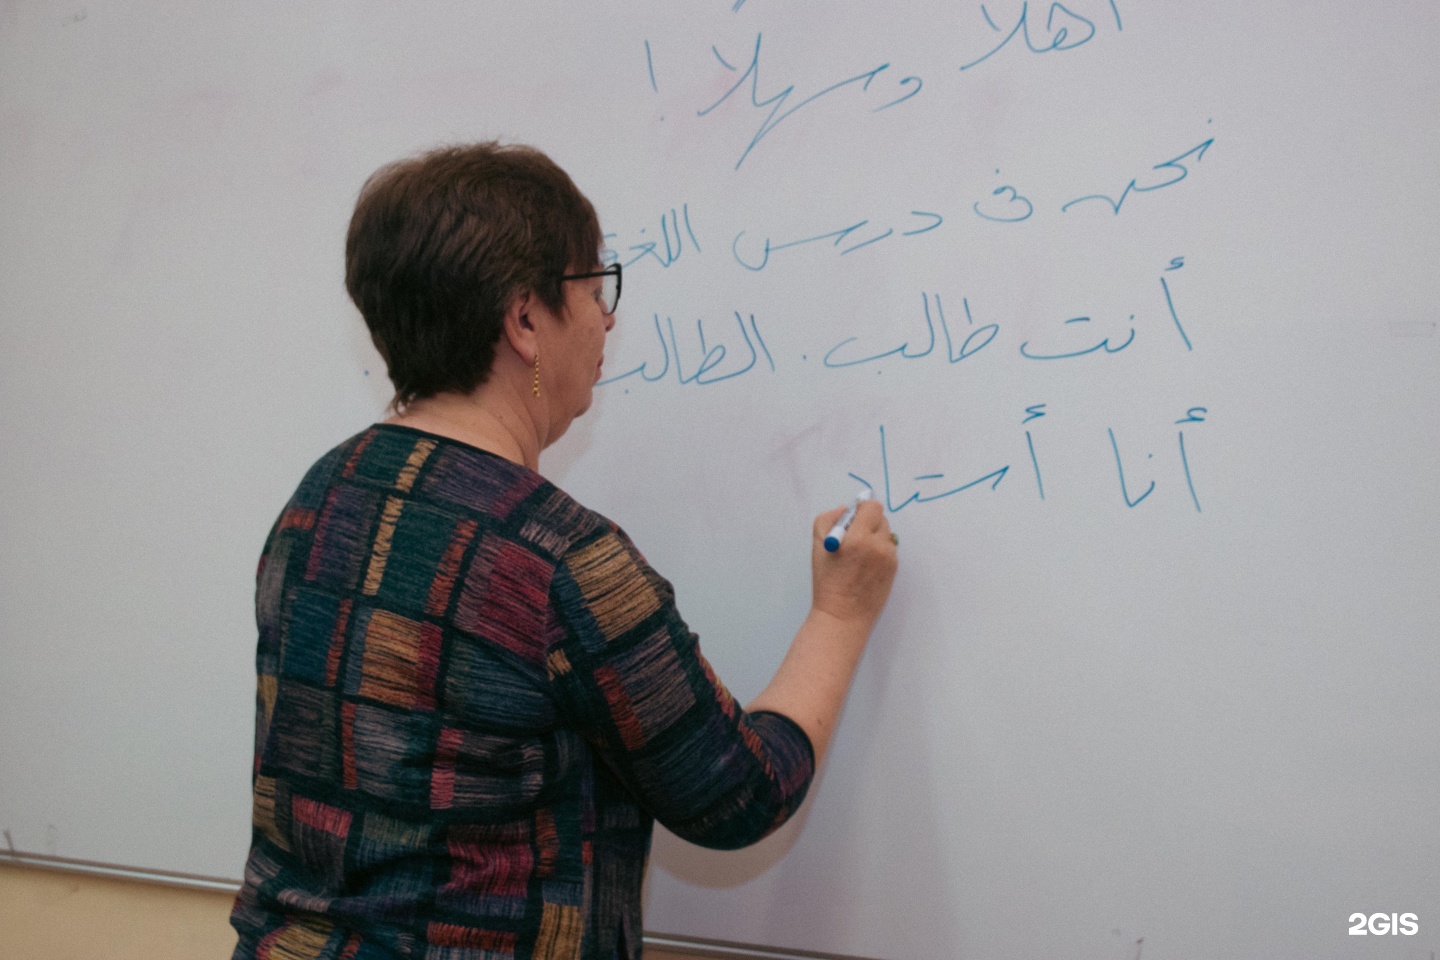 أهلا وسهلاً!
نحن فى درس اللغة
أنت طالب. الطالب
أنا أستاد
2GIS